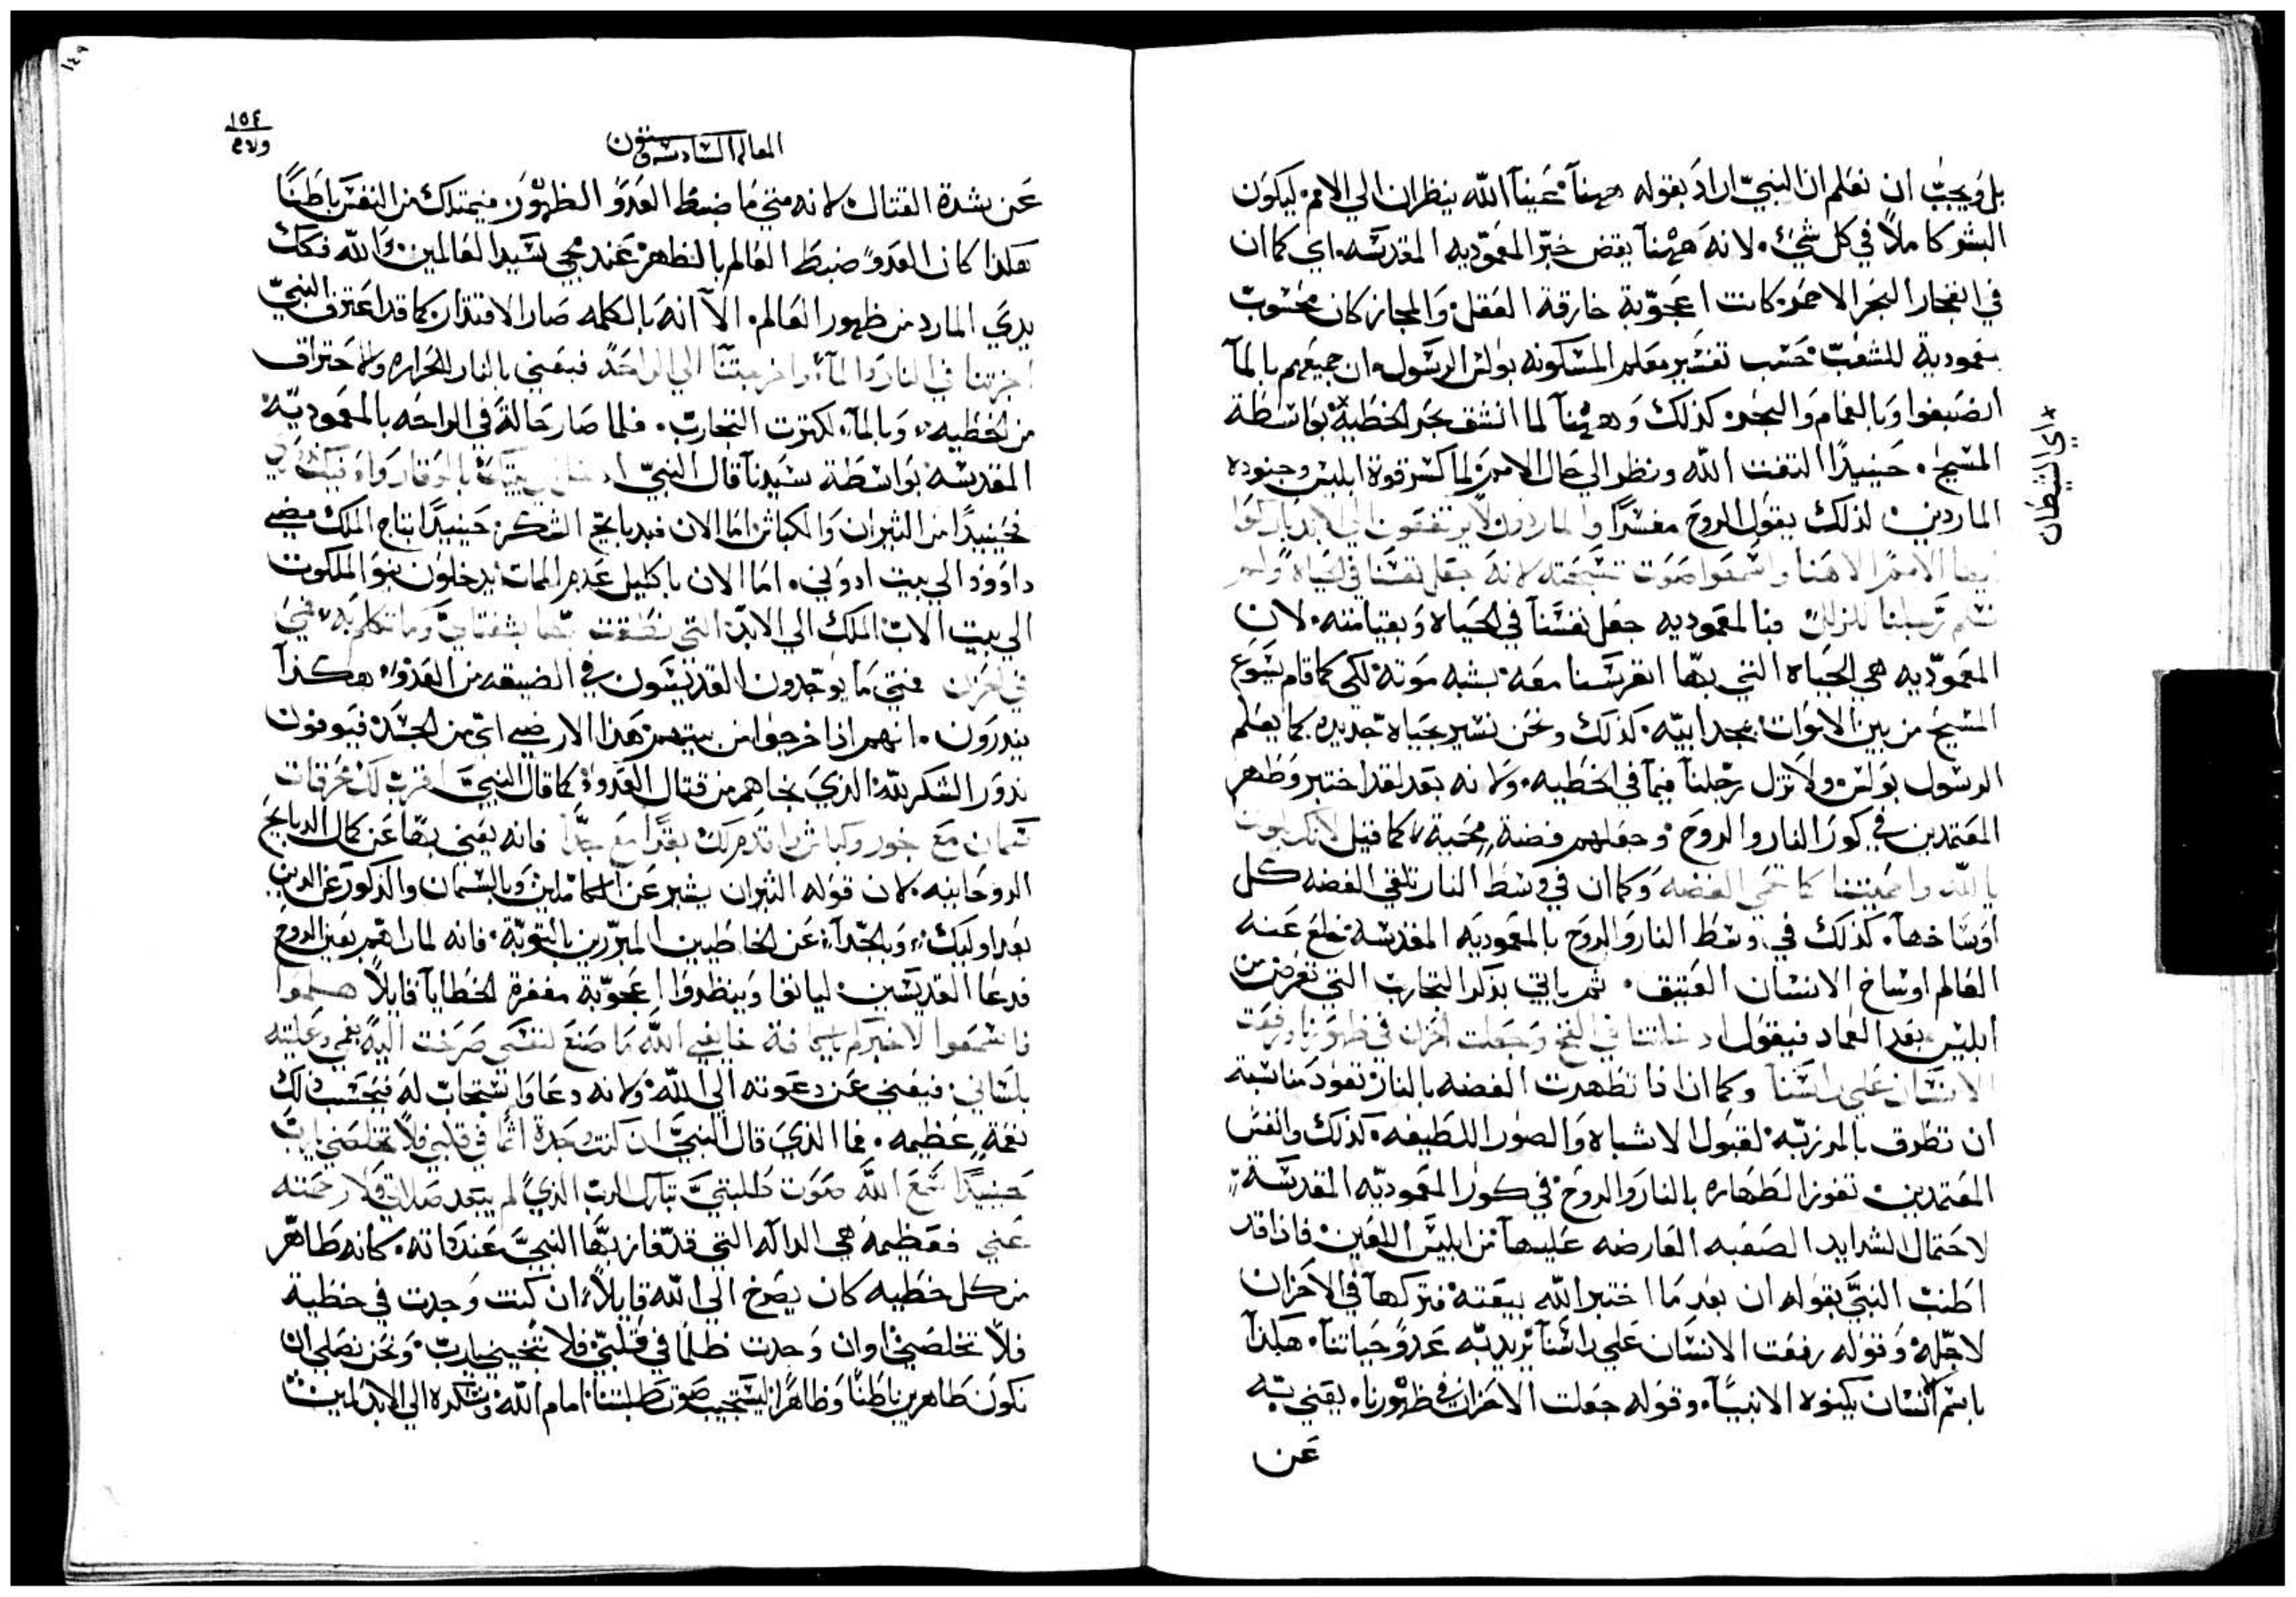 بل ويجب ان نعلم ان النبيّ اراد بقوله ههنآ عَينآ الله ينظران الي الامم. ليكون
البشر كاملاً في كل شيٍ. لانه ههنآ يقض خبّر المعموّديه المقدسَه. اي كما ان
في انفجار البحر الاحمر كانت اعجوّبة خارقة العقل والمجاز كان محسوب
بمعمودية للشعب حسَب تفسّير معلم المسَكونه بولسَ الرسَول. ان جميعهم بالمآ
انصَبغوا وبالغمام والبحر. كذلك وههنآ لما انشق بحر الخطية× بواسَطة
المسَيح. حَينيدًا التفت الله ونظر الي حال الامم. لما كسَر قوة ابليسَ وجنوده
الماردين. لذلك يقول الروح مفسّرًا والماردون لا يرتفعون الي الابد باركوا
ايها الامم الاهنا واسَمعوا صَوت تسَبحته لانه جعل نفسَنآ في الحَياه ولم
تسَلم ارجلنا للزلل فبا لمعموديه جعل نفسَنآ في الحَياه وبقيامته. لان
المعموّديه هي الحياه التي بها انغرسَنا معه بشبه موته لكي كما قام يسَوع
المسَيح من بين الاموات بمجد ابيّه. كذلك ونحن نسَير بحياه جديده كما يعلم
الرسَول بولسَ ولا تزل رجلنآ فيمآ في الخطيه. ولانه بعد لقد اختبر وطهر
المعتمدين في كور النار والروح وجعلهم فضة محَمية كما قيل لانك بلوتنا
يا الله واحميتنا كما تحمي الفضه وكما ان في وسَط النار تلقي الفضه كل
اوسَاخهآ. كذلك في وسَط النار والروح بالمعموديه المقدسَة خلع عنه
العالم اوسَاخ الانسَان العَتيق. ثم ياتي بذكر التجارب التي تعرض من
ابليسَ بعد العماد فيقول ادخلتنا في الفخ وجعلت احزان في ظهورنا ورفعت
الانسَان علي راسَنآ وكما ان اذا تطهرت الفضه بالنار تعود مناسَبة
ان تطرق بالمرزبّه لقبول الاشباه والصور اللطيفه. كذلك وانفسَ
المعتمدين تفوز الطَهاره بالنار والروح في كور المعموديّه المقدسَة
لاحتمال الشدايد الصَعبه العارضه عليهآ من ابليسَ اللعين فاذا قد
اطنب النبيّ بقوله ان بعد ما اختبر الله بيعته فتركهآ في الاحزان
لاجله وقوله رفعت الانسَان علي راسَنآ يريد بّه عدوّ حياتنآ. هكذآ
باسَم انسَان يكنوه الانبيآ. وقوله جعلت الاحزان في ظهورنا. يعني بّه
عَن
× اي الشيطان
١٤٩
١٥٤
المقاله السَادسَه وسَتون
عَن شدة القتال. لانه متي ما ضبط العدوّ الظهور. فيمتلك من النفسَ باطنًا
هكذا كان العدوّ ضبط العالم بالظهر عند مجي سَيد العالمين. والله فكك
يدي المارد من ظهور العالم. الآ انه بالكلمه صَار الاقتدار كما قد اعترف النبيّ
اجزتنا في النار والمآء واخرجتنا الي الراحَة فيعني بالنار الحراره والاحتراق
من الخطيه. وبالمآ. لكثرت التجارب. فلما صَار حَالة في الراحه بالمعموديّه
المقدسَه بواسَطة سَيدنآ قال النبيّ ادخل الي بيتك بالوقار واوفيك نذوري
فحينيدًا من الثيران والكباش اما الان فبدبايح الشكر. حَينيدًا بتاج الملك مضي
داوود الي بيت ادوني. اما الان باكليل عدم الممات يدخلون بنو الملكوت
الي بيت الاب الملك الي الابد. التي نطقت بها شفتايَ وما تكلم به فمي
في احزان فمتي ما يوّجدون القديسَون في الضيقه من العدوّ. هكذآ
يندرون. انهم اذا خرجوا من بيتهم هذا الارضي اي من الجسَد فيوفون
ندور الشكر لله الذي نجاهم من قتال العدو. كما قال النبيّ اقرب لك محرقات
سَمان مع بخور وكباش واقدم لك بقرًا مع جدآ فانه يعني بها عن كمال الدبايح
الروحَانيه. لان قوله الثيران يشير عن الكاملين وبالسَمان والذكور عن الدين
بعد اوليك. وبالجدآ عن الخاطيين المبرّرين بالتوبّة. فانه لما راهم بعين الروح
فدعا القديسَين. لياتوا وينظروا اعجوّبة مغفرة الخطايآ قايلاً هلموا
فاسَمعوا لاخبركم يا كافة خايفي الله ما صنع لنفسَي صَرخت اليه بفمي وعليته
بلسَاني فيعني عن دعوته الي الله. ولانه دعا واسَتجاب له فيحسَب ذلك
نعمة عظيمه. فما الذي قال النبيّ ان كنت وجدة اثمًا في قلبي فلا تخلصني يارب
حَينيدًا سَمع الله صَوت طلبتيَ تبارك الرب الذي لم يبعد صلاتي ولا رحمته
عني فعظيمة هي الداله التي قد فاز بها النبيّ عند ذاته. كانه طاهر
من كل خطيه كان يصَرخ الي الله قايلاً. ان كنت وجدت في خطية
فلا تخلصَني اوان وجدت ظلمًا في قلبيّ فلا تنجيني يارب. ونحن نصَلي ان
نكون طاهرين باطنًا وظاهرًا ليسَتجيب صَوت طلبتنا امام الله ونشكره الي الابد امين